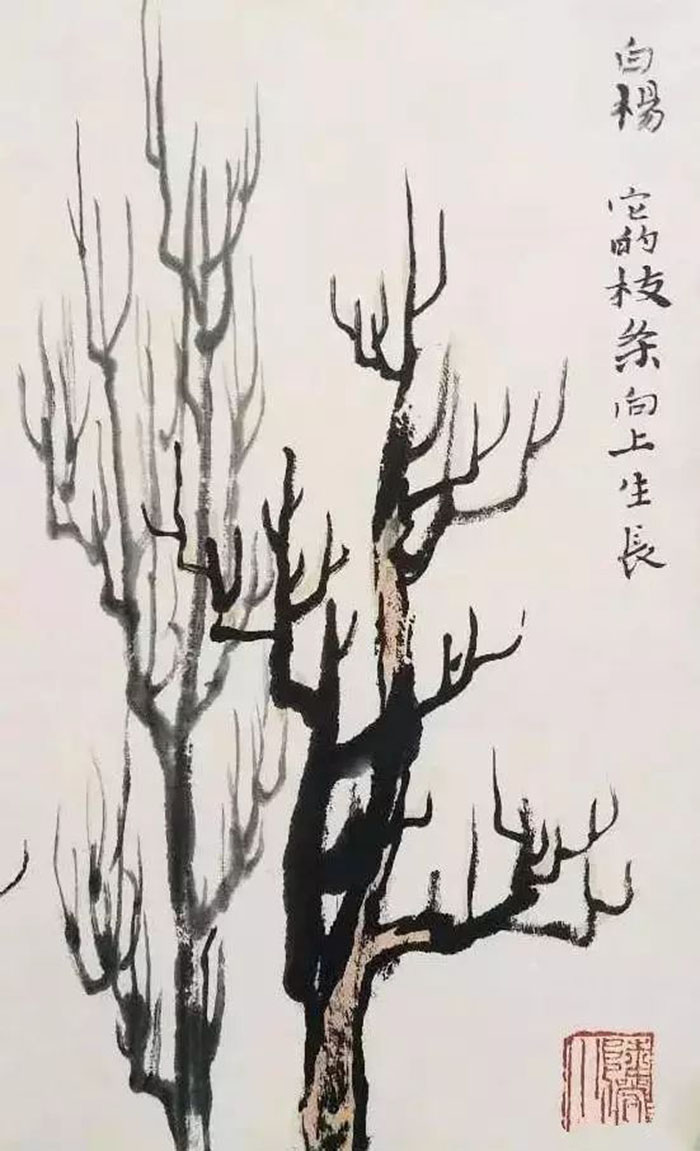 白楊 它的枝条向上生長